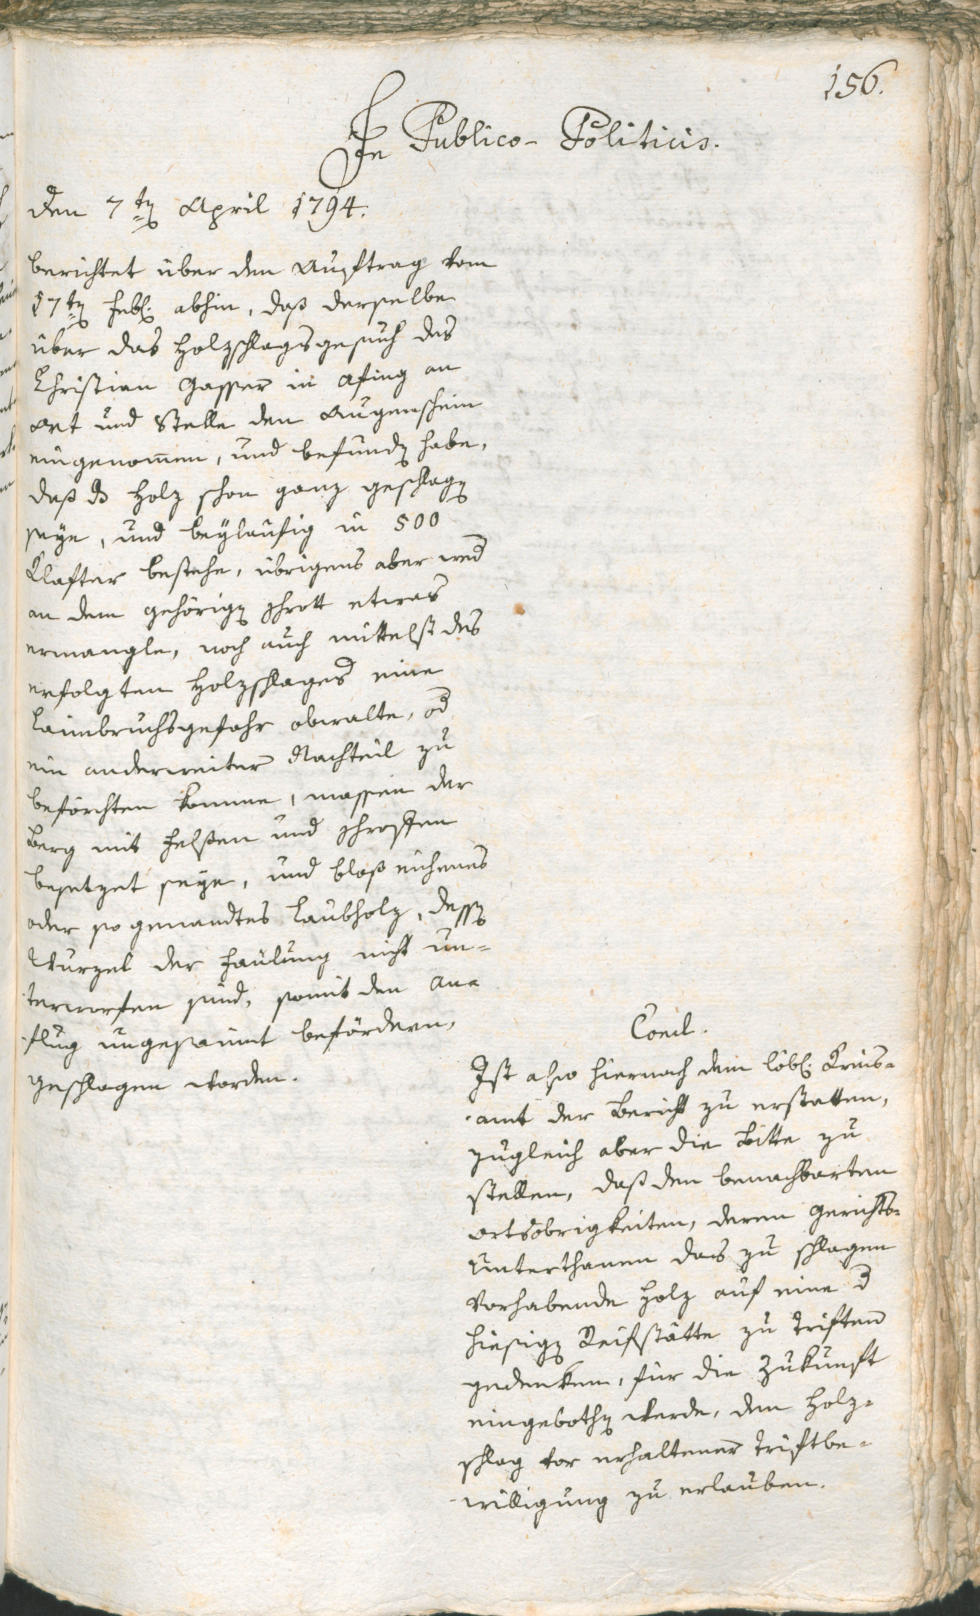 156.
In Publico-Politicis.
Den 7ten April 1794.
berichtet über den Auftrag vom
17ten Febr: abhin, daß derselbe
über das Holzschlagsgesuch des
Christian Gasser in Afing an
Ort und Stelle den Augenschein
eingenommen, und befunden habe,
daß das Holz schon ganz geschlagen
seye, und beyläufig in 500
Klafter bestehe, übrigens aber weder
an dem gehörigen Schrott etwas
ermangle, noch auch mittelst des
erfolgten Holzschlages eine
Laimbruchsgefahr obwalte, oder
ein anderweiter Nachteil zu
beförchten komme, massen der
Berg mit Felßen und Schroffen
besetzet seye, und bloß eichenes
oder so genandtes Laubholz, dessen
Wurzel der Faulung nicht un-
terworfen sind, somit den An-
flug ungesaumt befördern,
geschlagen worden.
Concl.
Ist also hiernach dem löbl: Kreis-
amt der Bericht zu erstatten,
zugleich aber die Bitte zu
stellen, daß den benachbarten
Ortsobrigkeiten, deren Gerichts-
Unterthanen das zu schlagen
vorhabende Holz auf eine der
hiesigen Reifstätte zu triften
gedenken, für die Zukunft
eingebothen werde, den Holz-
schlag vor erhaltener Triftbe-
willigung zu erlauben.